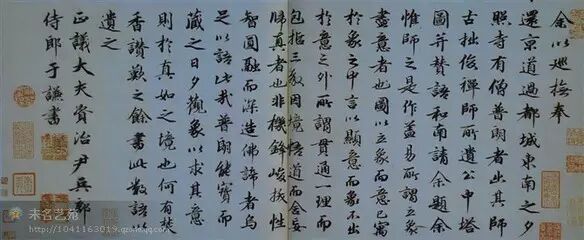 余以巡撫奉
還京道過都城東南之夕
照寺有僧普朗者出其師
古拙俊禪師所遺公中塔
圖并賛語和南請余題余
惟師之是作蓋易所謂立象
盡意者也圖以立象而意已寓
於象之中言以顯意而象不出
於意之外所謂貫通一理而
包括三教因境悟道而舍妄
歸真者也非機鋒峻拔性
智圓融而深造佛諦者烏
足以語此哉普朗能寶而
藏之日夕觀象以求其意
則於真如之境也何有焚
香讚歎之餘書此數語
遺之
正議大夫資治尹兵部
侍郎于謙書
未名艺苑
http://1041163019.qzone.qq.com